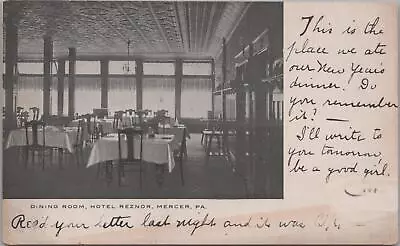 This is the
place we ate
our New Year's
dinner. Do
you remember
it? —
I'll write to
you tomorrow
be a good girl.
DINING ROOM, HOTEL REZNOR, MERCER, PA.
Rec'd your letter last night and it was O.K. —